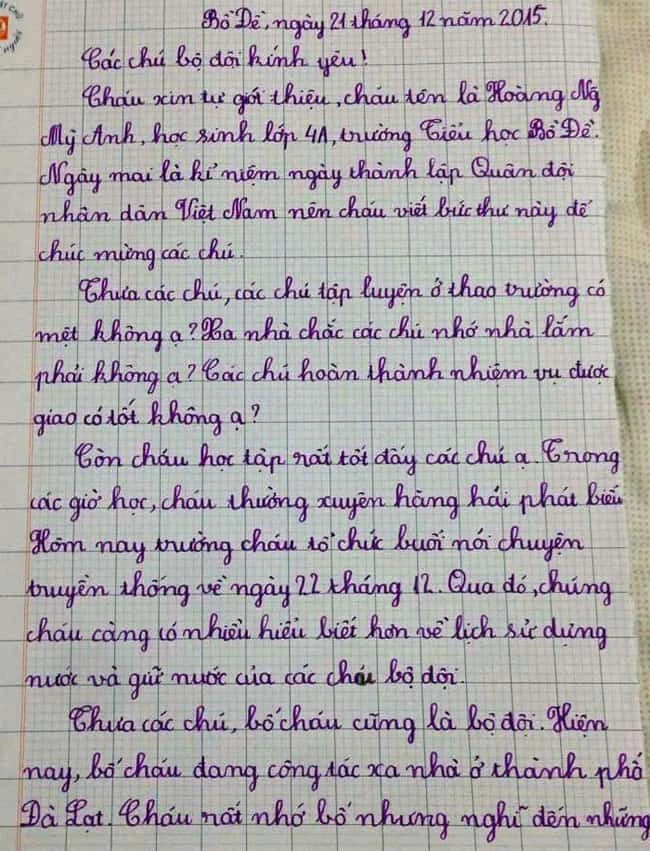 Bồ Đề, ngày 21 tháng 12 năm 2015.
Các chú bộ đội kính yêu!
Cháu xin tự giới thiệu, cháu tên là Hoàng Ng
Mỹ Anh, học sinh lớp 4A, trường Tiểu học Bồ Đề.
Ngày mai là kỉ niệm ngày thành lập Quân đội
nhân dân Việt Nam nên cháu viết bức thư này để
chúc mừng các chú.
Thưa các chú, các chú tập luyện ở thao trường có
mệt không ạ? Xa nhà chắc các chú nhớ nhà lắm
phải không ạ? Các chú hoàn thành nhiệm vụ được
giao có tốt không ạ?
Còn cháu học tập rất tốt đấy các chú ạ. Trong
các giờ học, cháu thường xuyên hăng hái phát biểu
Hôm nay trường cháu tổ chức buổi nói chuyện
truyền thống về ngày 22 tháng 12. Qua đó, chúng
cháu càng có nhiều hiểu biết hơn về lịch sử dựng
nước và giữ nước của các chú bộ đội.
Thưa các chú, bố cháu cũng là bộ đội. Hiện
nay, bố cháu đang công tác xa nhà ở thành phố
Đà Lạt. Cháu rất nhớ bố nhưng nghĩ đến những